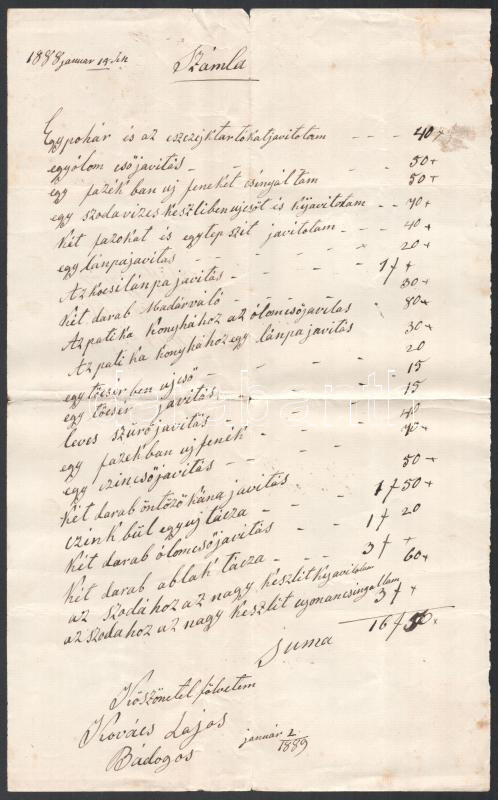 1888 január 14-én
Számla
Egy pohár és az eszczijktartókatjavitotam - - - 40 +
egyólom csőjavitás - - - - - 50 +
egy fazék ban uj feneket csinyáltam 50 +
egy szodavizes kesztiben ujcsöt és kijavitotam - - 70 +
két fazokat és egytep szit javitotam - - 40 +
egy lánpajavitas - - - - 20 +
Az kocsilánpa javitás - - - - 1 f +
két darab Madárváló - - - - 30 +
Az patika konyhához az ólomcsőjavitas 80 +
Az pati ka konyhához egy lánpajavitás 30 +
egy töcser ben ujcső - - - 20
egy töcser javitás - - - 15
leves szűrőjavitás - - - 15
egy fazekban uj fenék - - - 40
egy czincsőjavitás - - - 70 +
két darab öntözőkána javitás 50 +
czink bül egy uj tácza - - 1 f 50 +
két darab ólomcsőjavitás 1 f 20
két darab ablak tácza - - - 3 f +
az szodához az nagy kesztit kijavitotam 60 +
az szodához az nagy kesztit ujonancsinyaltam 3 f +
Suma 16 f 50 +
Köszönetel fölvetem
Kovács Lajos
Bádogos
január 2
1889
darabanth